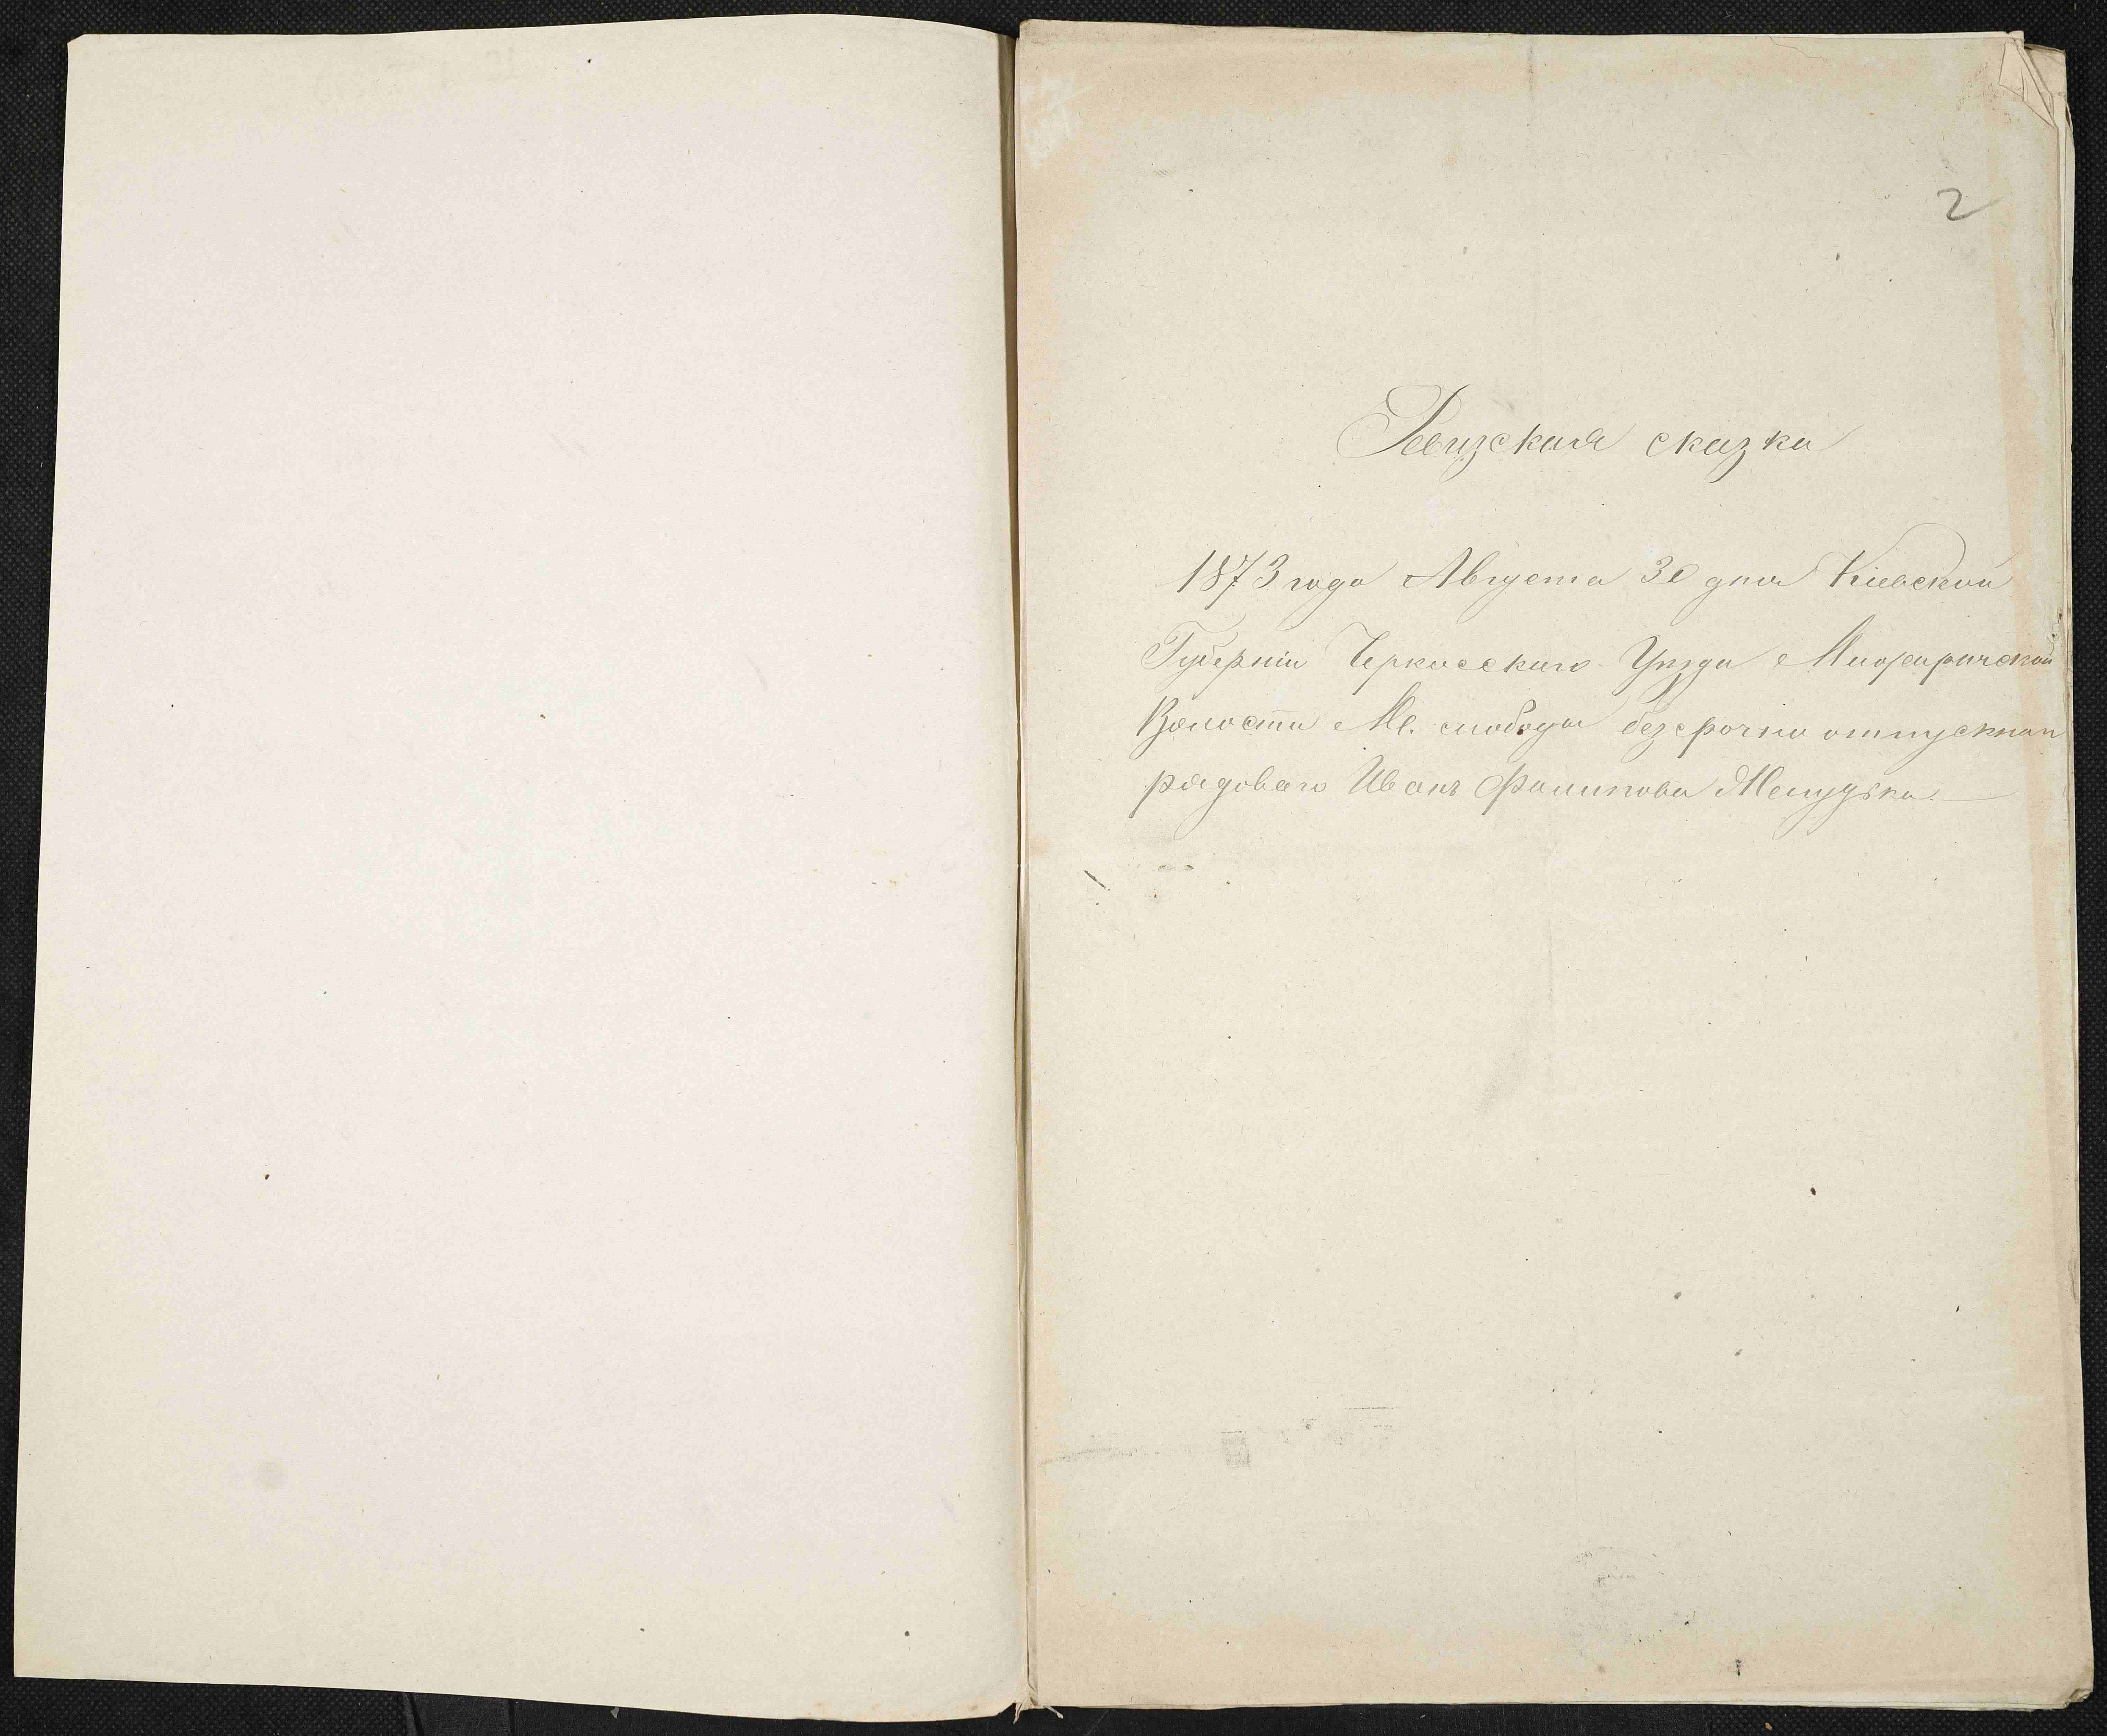 2
Ревизская сказка
1873 года Августа 30 дня Кіевской
Губерніи Черкасскаго Уѣзда
Волости М. слобода безсрочно отпускнаго
рядоваго Иванъ Филипова